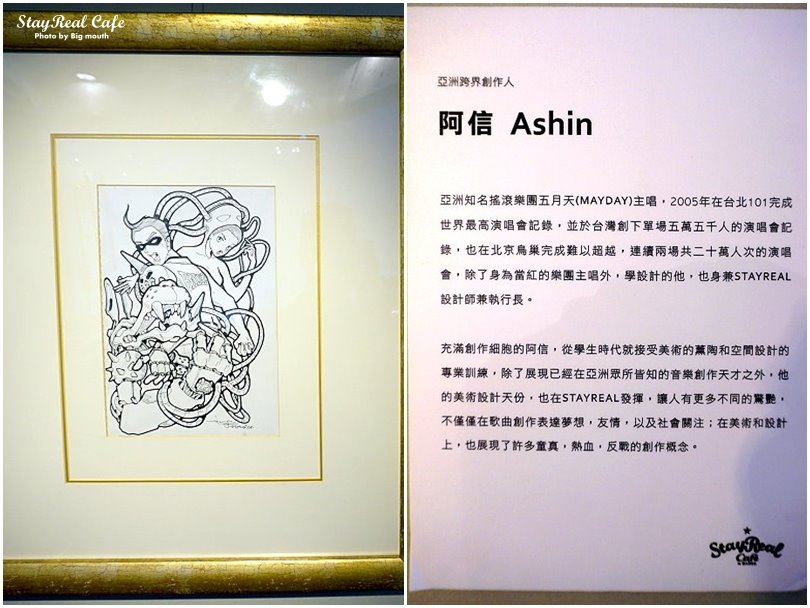 StayReal Cafe
Photo by Big mouth
亞洲跨界創作人
阿信 Ashin
亞洲知名搖滾樂團五月天(MAYDAY)主唱，2005年在台北101完成
世界最高演唱會記錄，並於台灣創下單場五萬五千人的演唱會記
錄，也在北京鳥巢完成難以超越，連續兩場共二十萬人次的演唱
會，除了身為當紅的樂團主唱外，學設計的他，也身兼STAYREAL
設計師兼執行長。
充滿創作細胞的阿信，從學生時代就接受美術的薰陶和空間設計的
專業訓練，除了展現已經在亞洲眾所皆知的音樂創作天才之外，他
的美術設計天份，也在STAYREAL發揮，讓人有更多不同的驚艷，
不僅僅在歌曲創作表達夢想，友情，以及社會關注；在美術和設計
上，也展現了許多童真，熱血，反戰的創作概念。
StayReal
Café